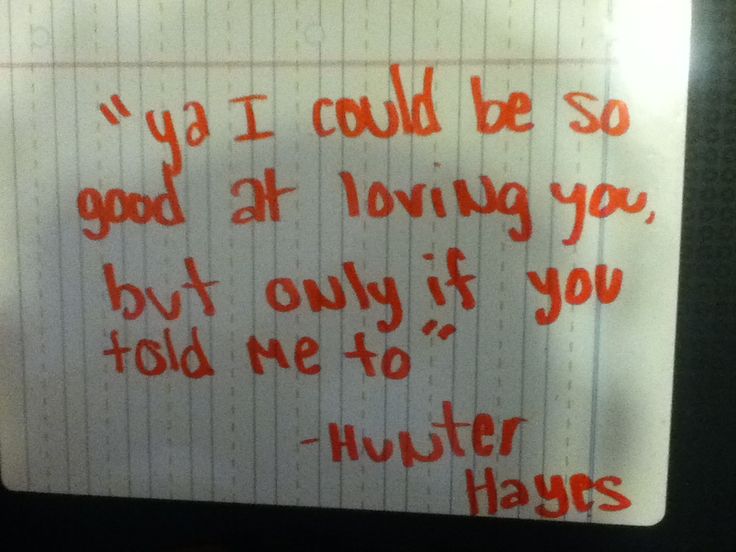 "ya I could be so
good at loving you,
but only if you
told me to"
-Hunter
Hayes